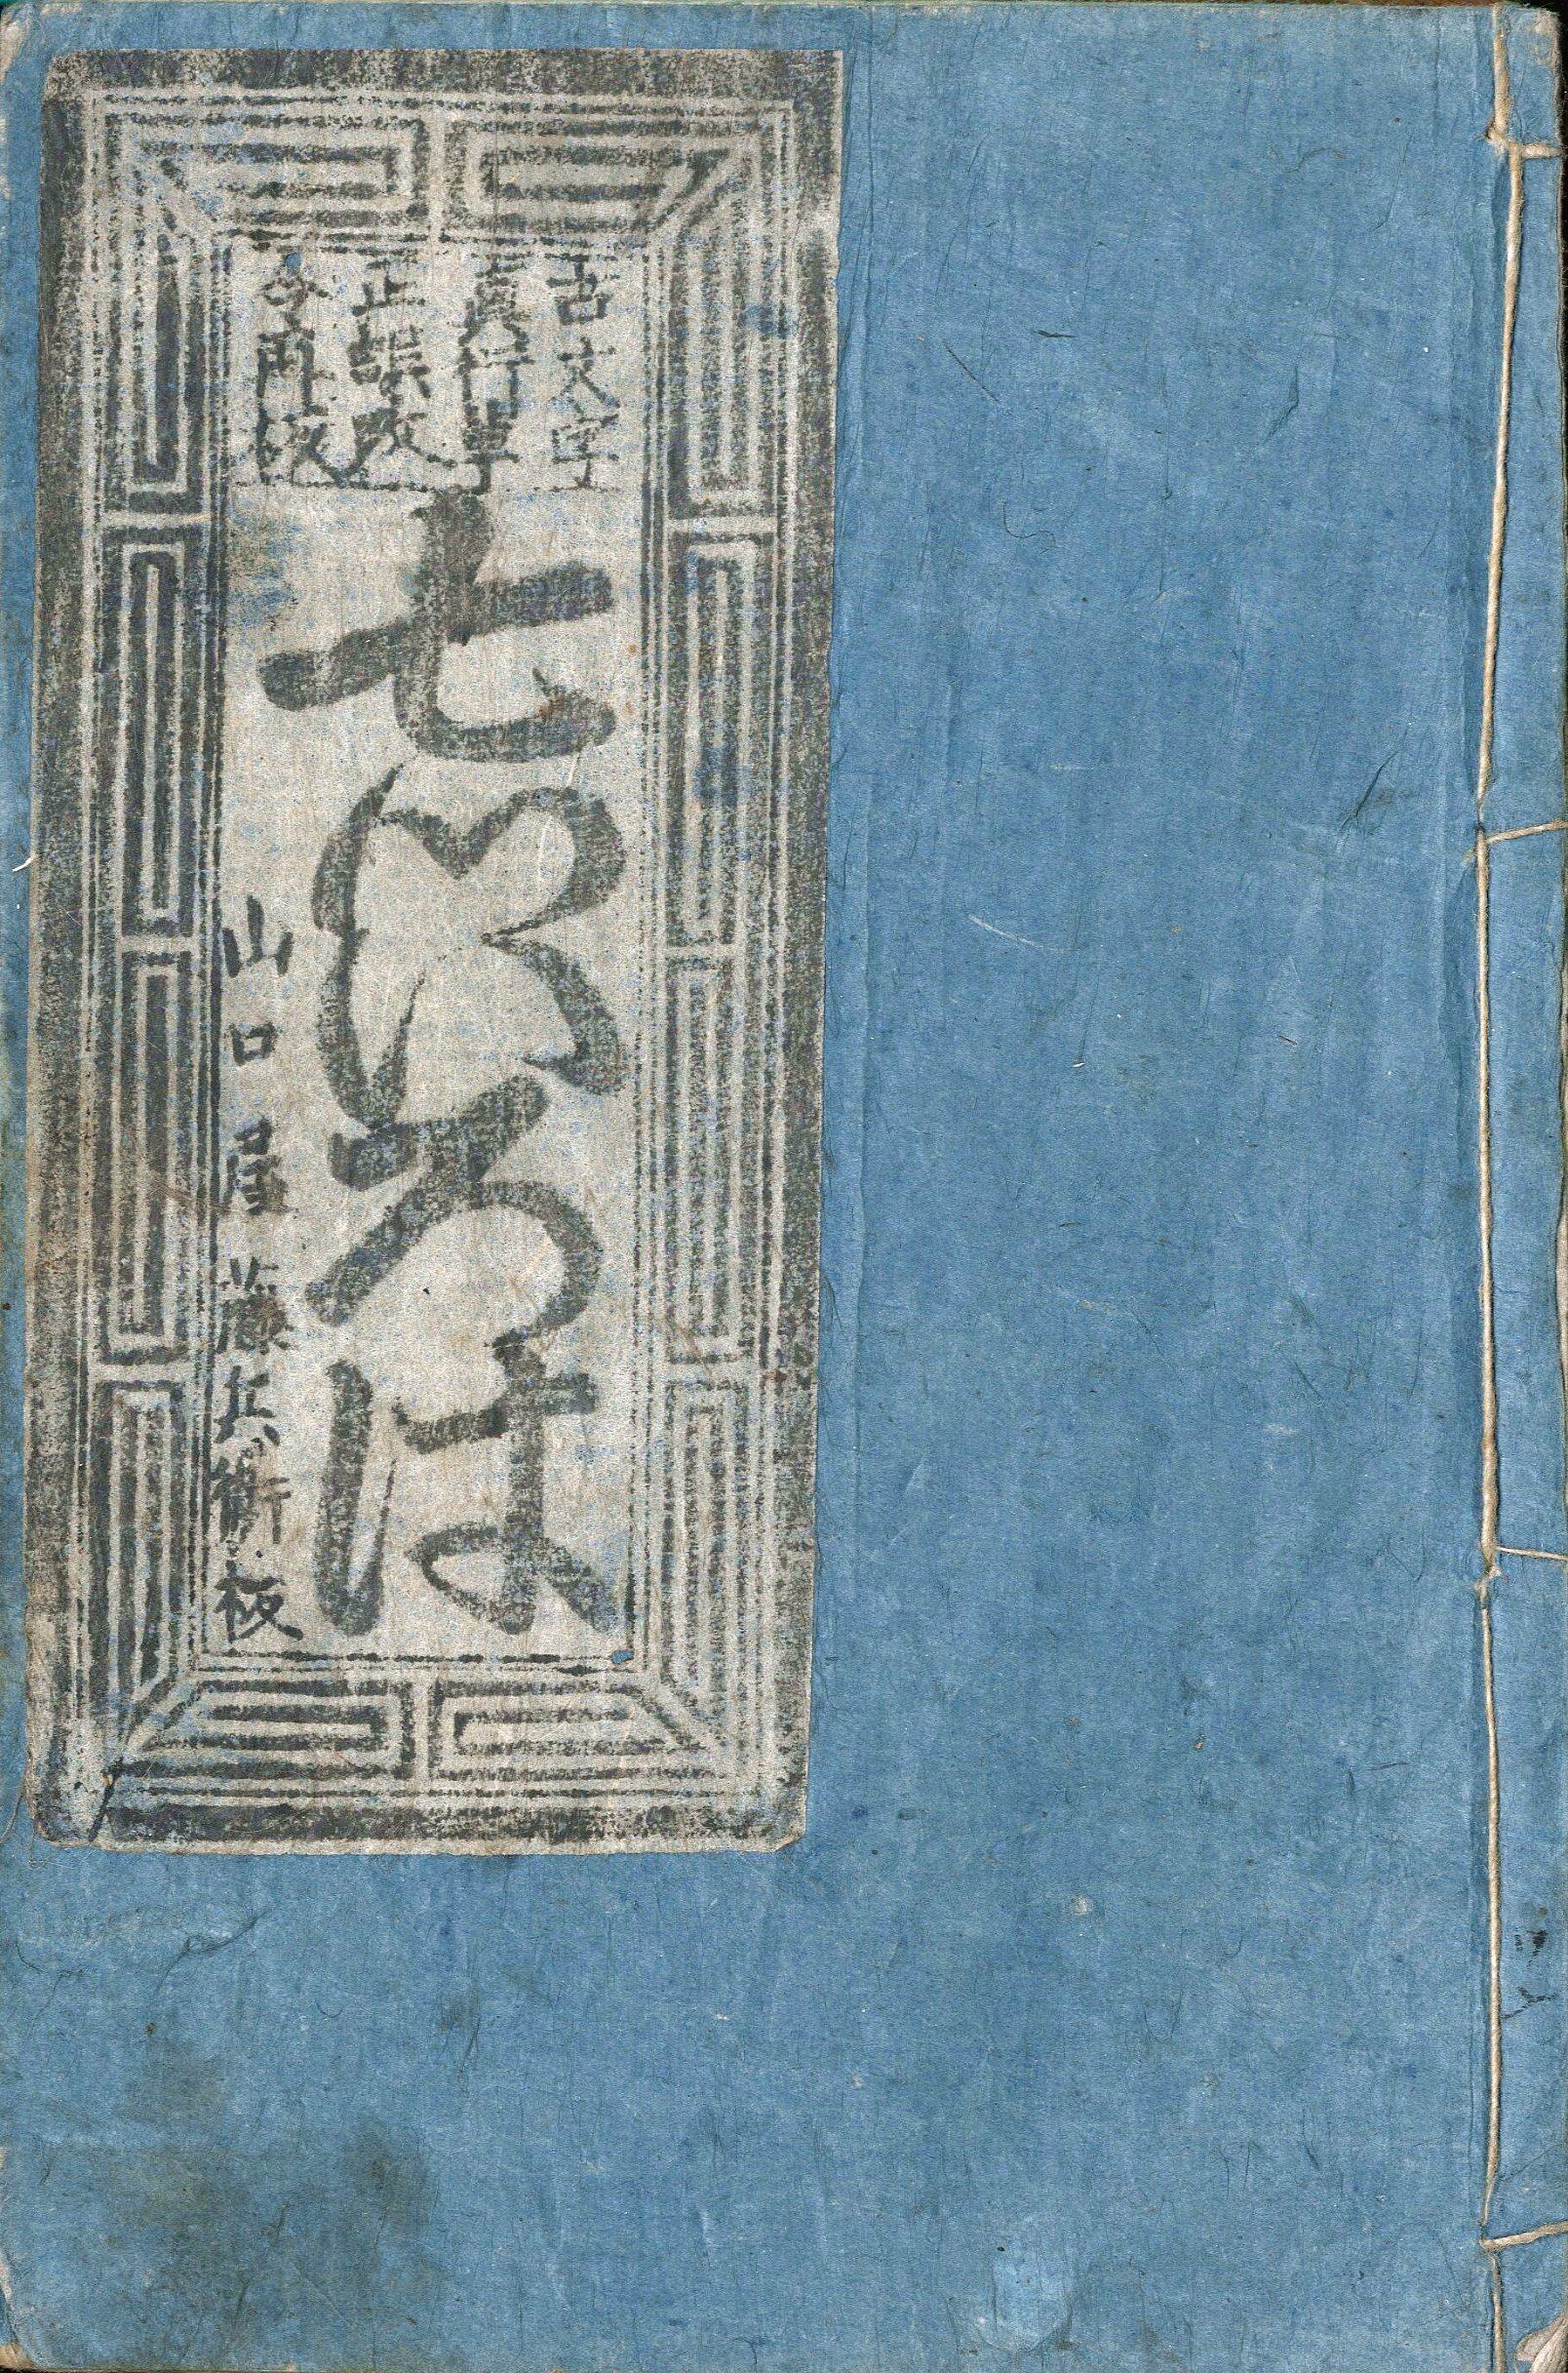 古文字
眞行草
正誤改
今再板
七いろは
山口屋藤兵衛板